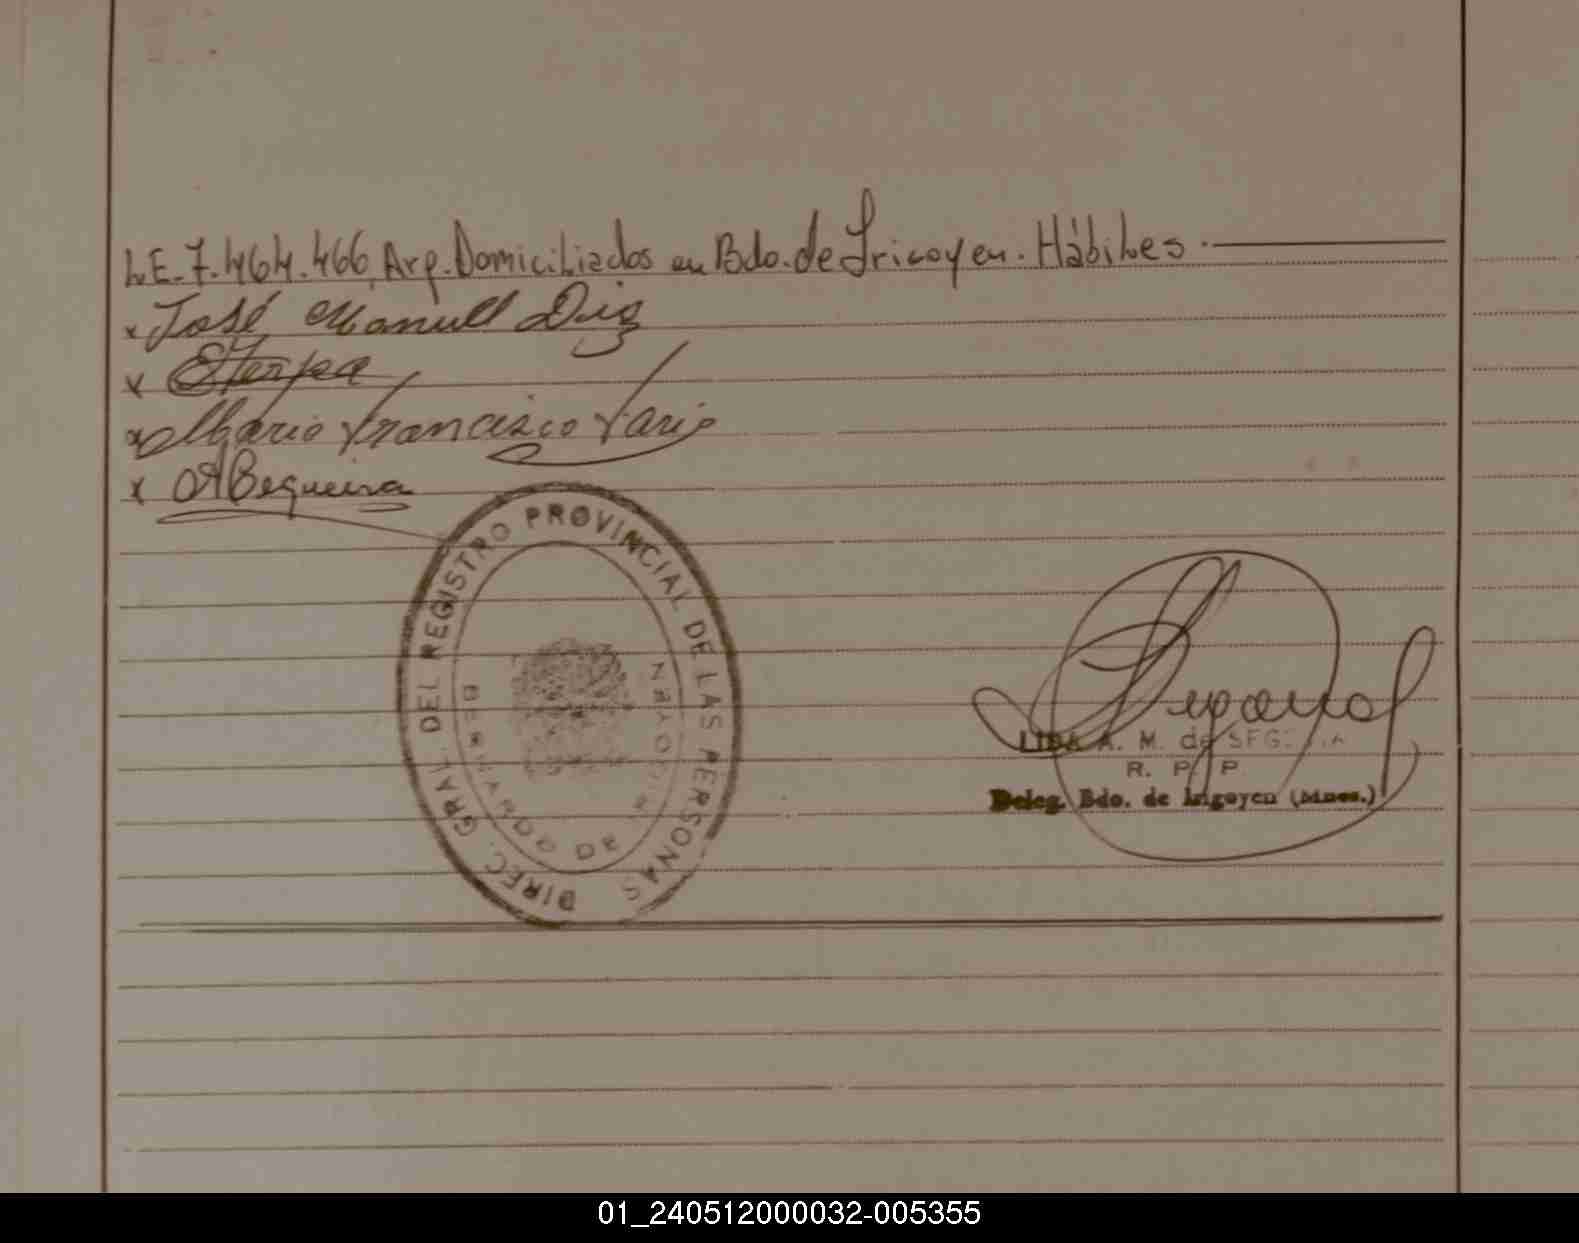 L.E. 7.464.466, Arg. Domiciliados en Bdo. de Irigoyen. Hábiles.
x José Manuel Diz
x
x Mario Francisco
x
DIREC. GRAL. DEL REGISTRO PROVINCIAL DE LAS PERSONAS
BERNARDO DE IRIGOYEN
LIDA A. M. de
R. P. P
Deleg. Bdo. de Irigoyen (Mnes.)
01_240512000032-005355